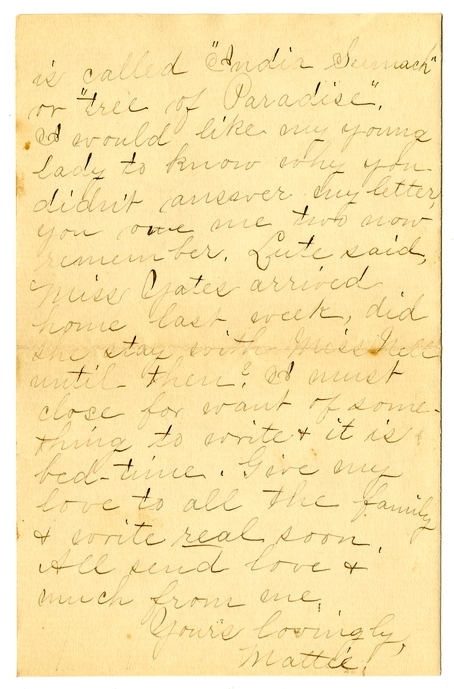 is called "India Sumach"
or "tree of Paradise".
I would like my young
lady to know why you
didn't answer my letter,
you owe me two now
remember. Lute said,
Miss Yates arrived
home last week, did
she stay with Miss Nell
until then? I must
close for want of some-
thing to write & it is
bed-time. Give my
love to all the family
& write real soon.
All send love &
much from me.
Yours lovingly,
Mattie.